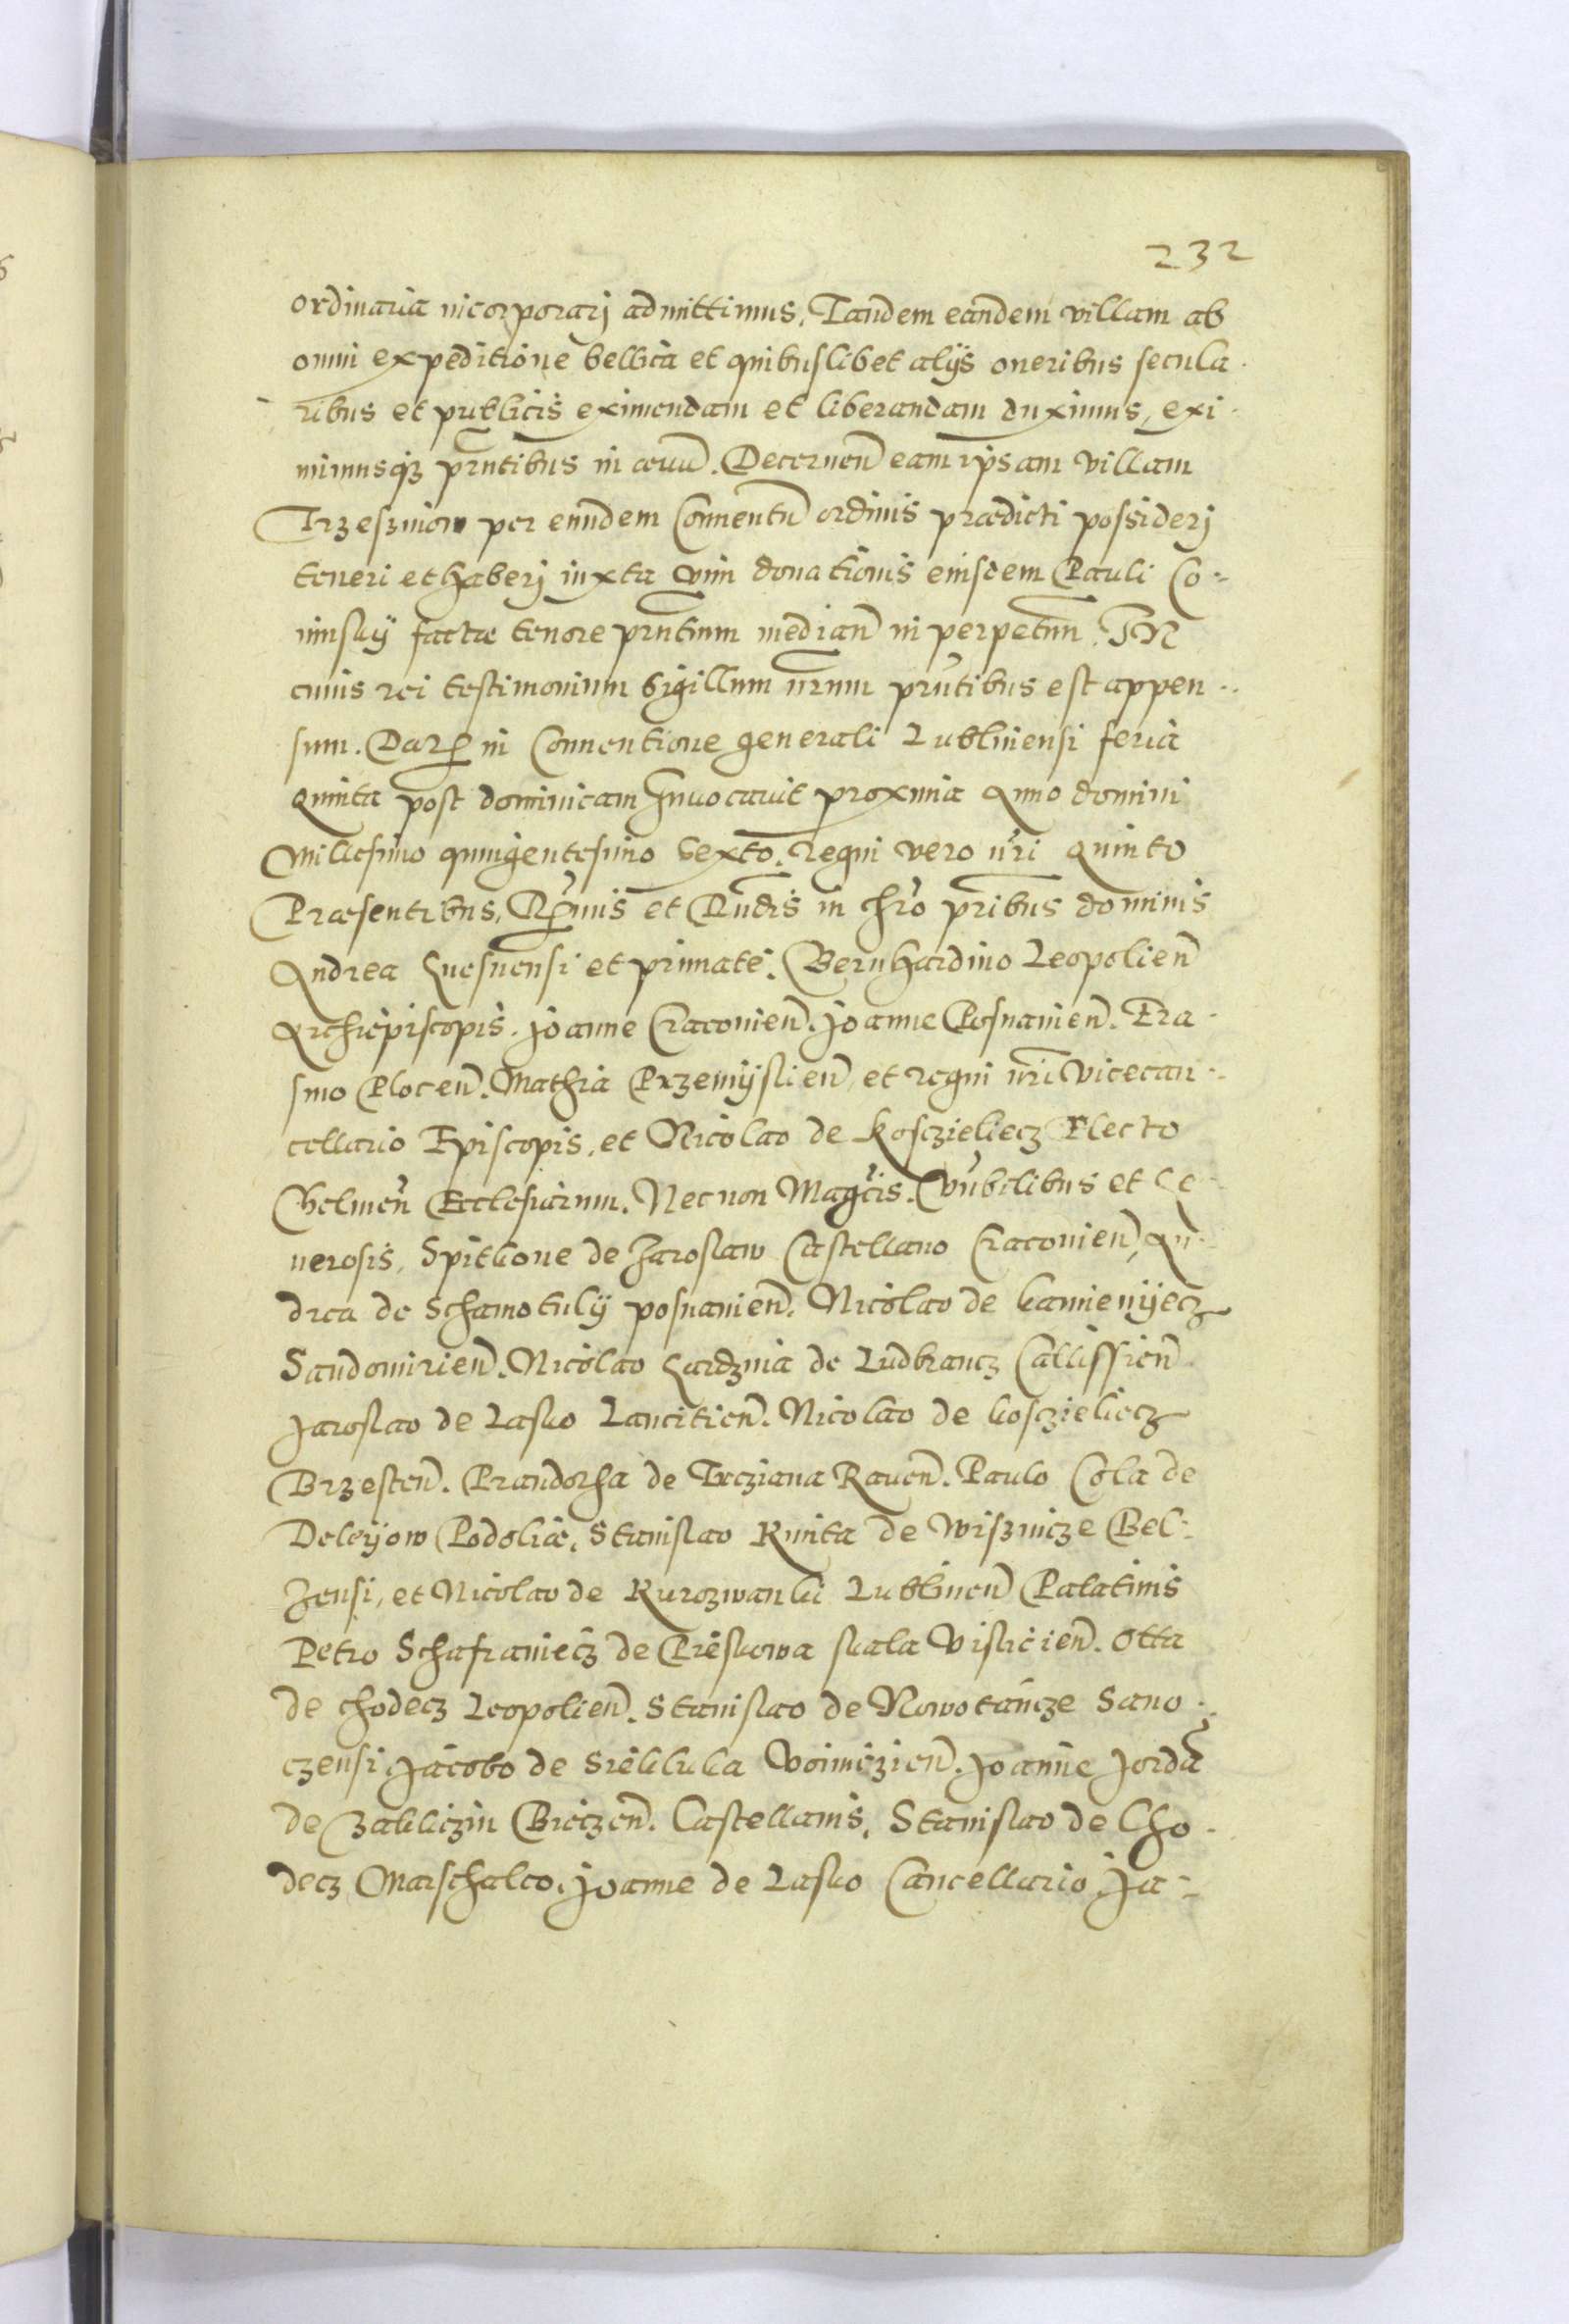 232
ordinaria incorporarj admittimus. Tandem eandem villam ab
omni expeditione bellica et quibuslibet alijs oneribus secula
ribus et publicis eximendam et liberandam duximus, exi
mimusq3 prntibus in aeuū. Decernen̄ eam ipsam villam
Trzeszniow per eundem Conuentū ordinis praedicti possiderj
teneri et haberj iuxta vim donationis eiusdem Pauli Co-
minskij factae tenore prntium median̄ in perpetuū. IN
cuius rei testimonium Sigillum nrum prntibus est appen-
sum. Dat in Conuentione generali Lubliniensi feria
quinta post dominicam Inuocauit proxima Anno domini
Millesimo quingentesimo Sexto. regni vero nri quinto
Praesentibus, Rmis et Rndis in chro pribus dominis
Andrea Gnesnensi et primate. Bernhardino Leopolien̄
Archiepiscopis. Joanne Cracouien̄. Joanne Posnanien̄. Era-
smo Plocen̄. Mathia Przemijslien̄ et regni nri Vicecan-
cellario Episcopis, et Nicolao de Kosczieliecz Electo
Chelmen̄ Ecclesiarum. Nec non Magcis. Nubilibus et Ge
nerosis, Spitkone de Jaroslaw Castellano Cracouien̄, An-
drea de Schamotulij posnanien̄. Nicolao de kamienijecz
Sandomirien̄. Nicolao Gardzina de Ludbrancz Callissien̄
Jaroslao de Lasko Lancitien̄. Nicolao de kosczieliecz
Brzesten̄. Prandotha de Trcziana Rauen̄. Paulo Cola de
Daleijow Podoliae. Stanislao Kmita de Wisznicze Bel-
zensi, et Nicolao de Kurozwanki Lublinen̄ Palatinis
Petro Schafraniecz de Pieskowa skala Vislicien̄. Otta
de chodecz Leopolien̄. Stanislao de Nowotancze Sano-
czensi Jacobo de Siekluka Woiniczien̄. Joanne Jordā
de Zakliczin Bieczen̄. Castellanis, Stanislao de Cho-
decz Marschalco. Joanne de Lasko Cancellario. Ja-